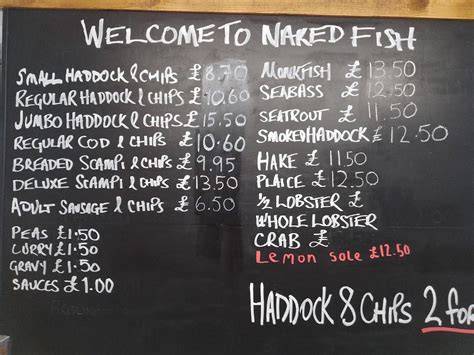 WELCOME TO NAKED FISH
SMALL HADDOCK & CHIPS £8.70
REGULAR HADDOCK & CHIPS £10.60
JUMBO HADDOCK & CHIPS £15.50
REGULAR COD & CHIPS £10.60
BREADED SCAMPI & CHIPS £9.95
DELUXE SCAMPI & CHIPS £13.50
ADULT SAUSAGE & CHIPS £6.50
PEAS £1.50
CURRY £1.50
GRAVY £1.50
SAUCES £1.00
MONKFISH £13.50
SEABASS £12.50
SEATROUT £11.50
SMOKED HADDOCK £12.50
HAKE £11.50
PLAICE £12.50
½ LOBSTER £
WHOLE LOBSTER
CRAB £
LEMON SOLE £12.50
HADDOCK & CHIPS 2 FOR